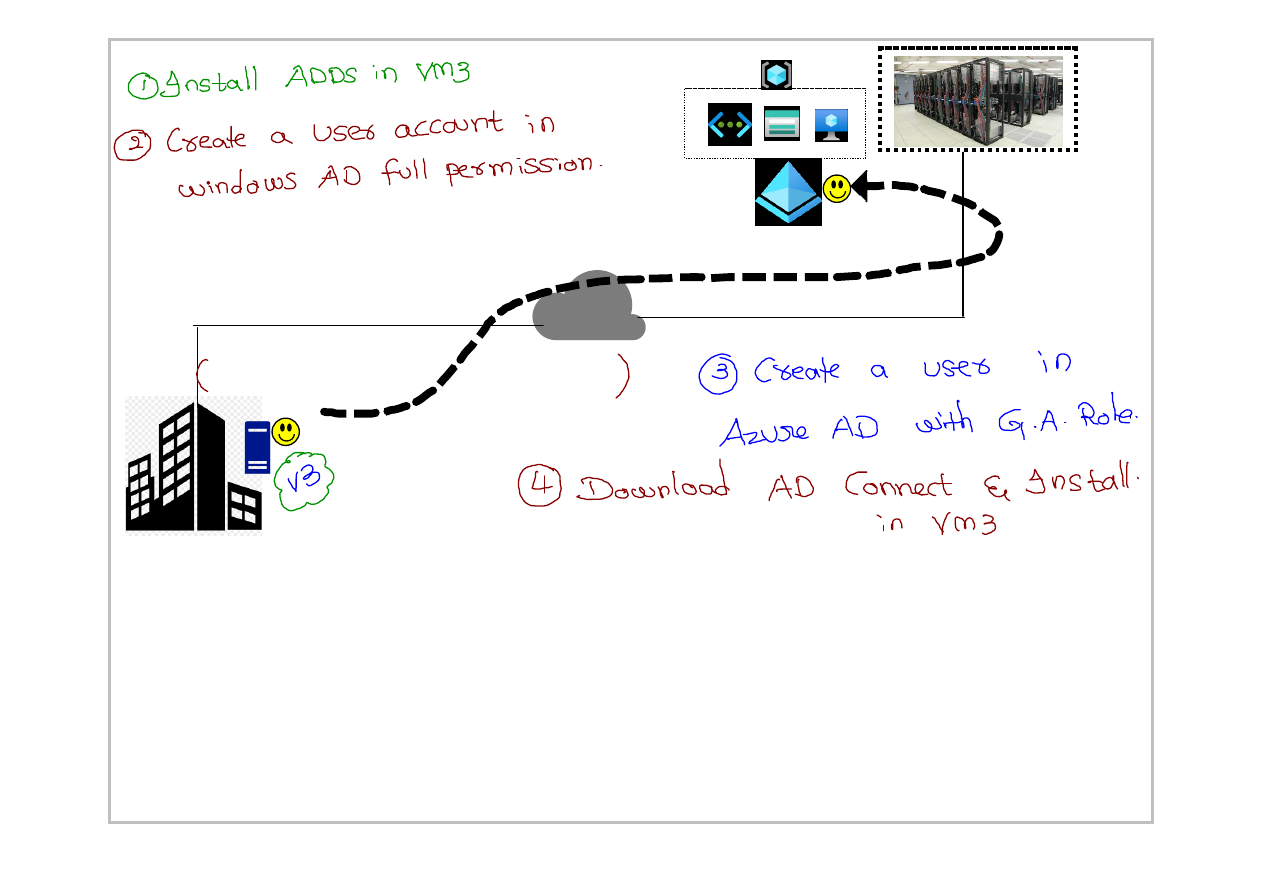 ① Install ADDS in VM3
② Create a user account in
windows AD full permission.
③ Create a user in
Azure AD with G.A. Role.
V3
④ Download AD Connect & Install.
in VM3